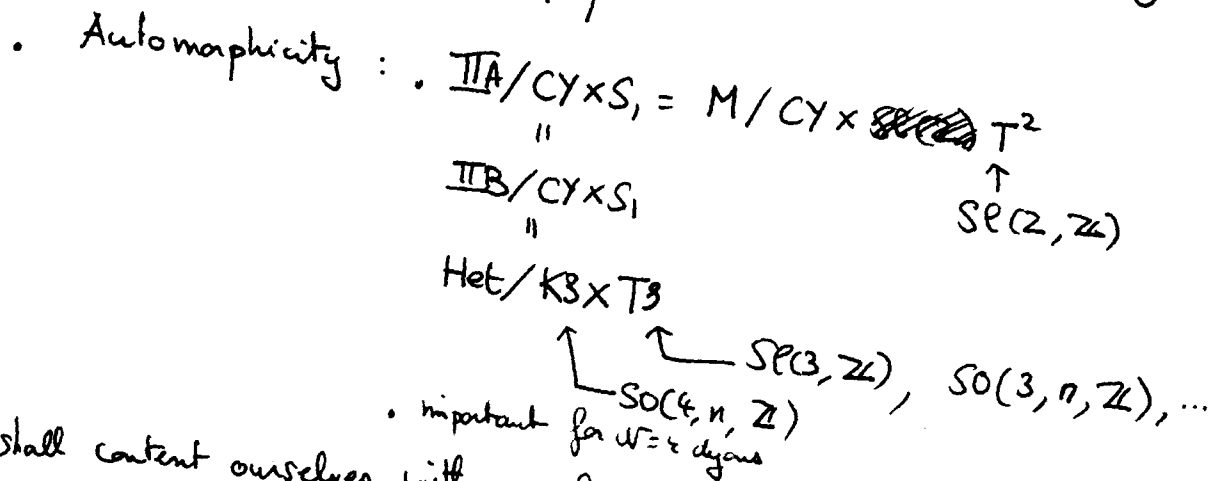 . Automorphicity : . IIA/CY×S₁ = M/CY× T²
"
IIB/CY×S₁
"
Het/K3×T3
↑
Sl(2,ℤ)
Sl(3,ℤ), SO(3,n,ℤ), ...
SO(4,n,ℤ)
. important for N=2 dyons
shall content ourselves with